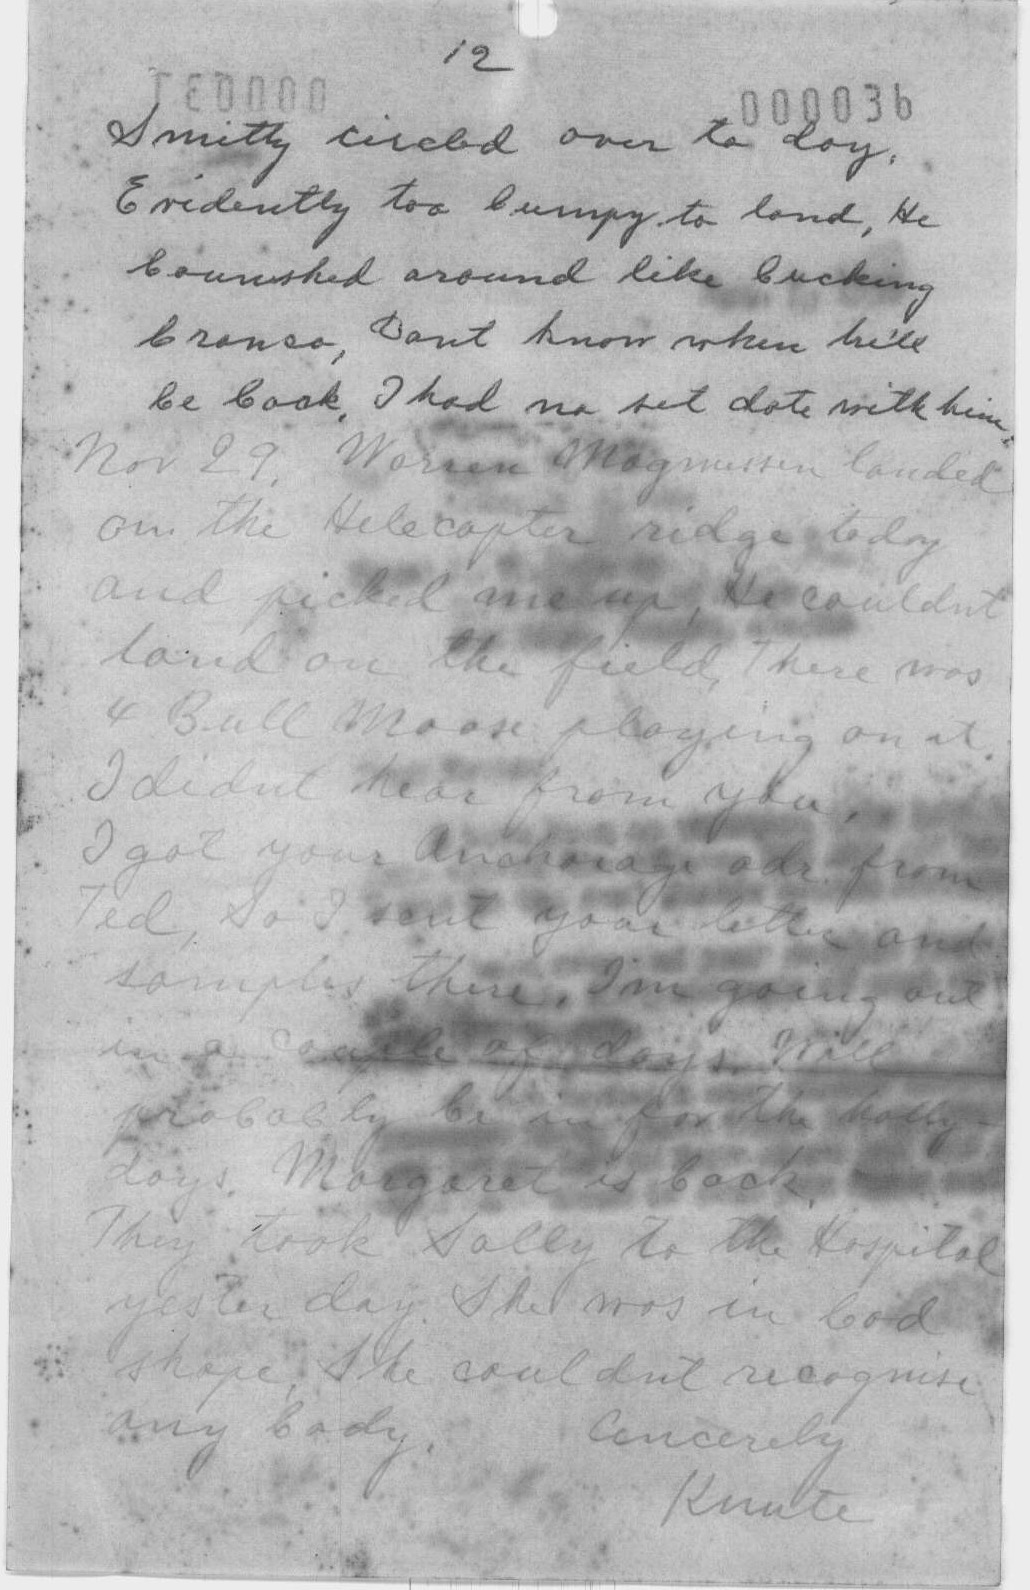 12
000036
Smitty circled over to day.
Evidently too bumpy to land, He
bounshed around like bucking
bronco, Dont know when he'll
be back. I had no set date with him.
Nov 29. Warren Magnussen landed
on the Helecopter ridge today
and picked me up, He couldnt
land on the field, There was
4 Bull Moose playing on it.
I didnt hear from you.
I got your Anchorage adr. from
Ted, So I sent your letter and
samples there. I'm going out
in a couple of days. Will
probably be in for the holly-
days. Margaret is back.
They took Sally to the Hospital
yester day. She was in bad
shape, She couldnt recognise
any body. Cencerely
Knute